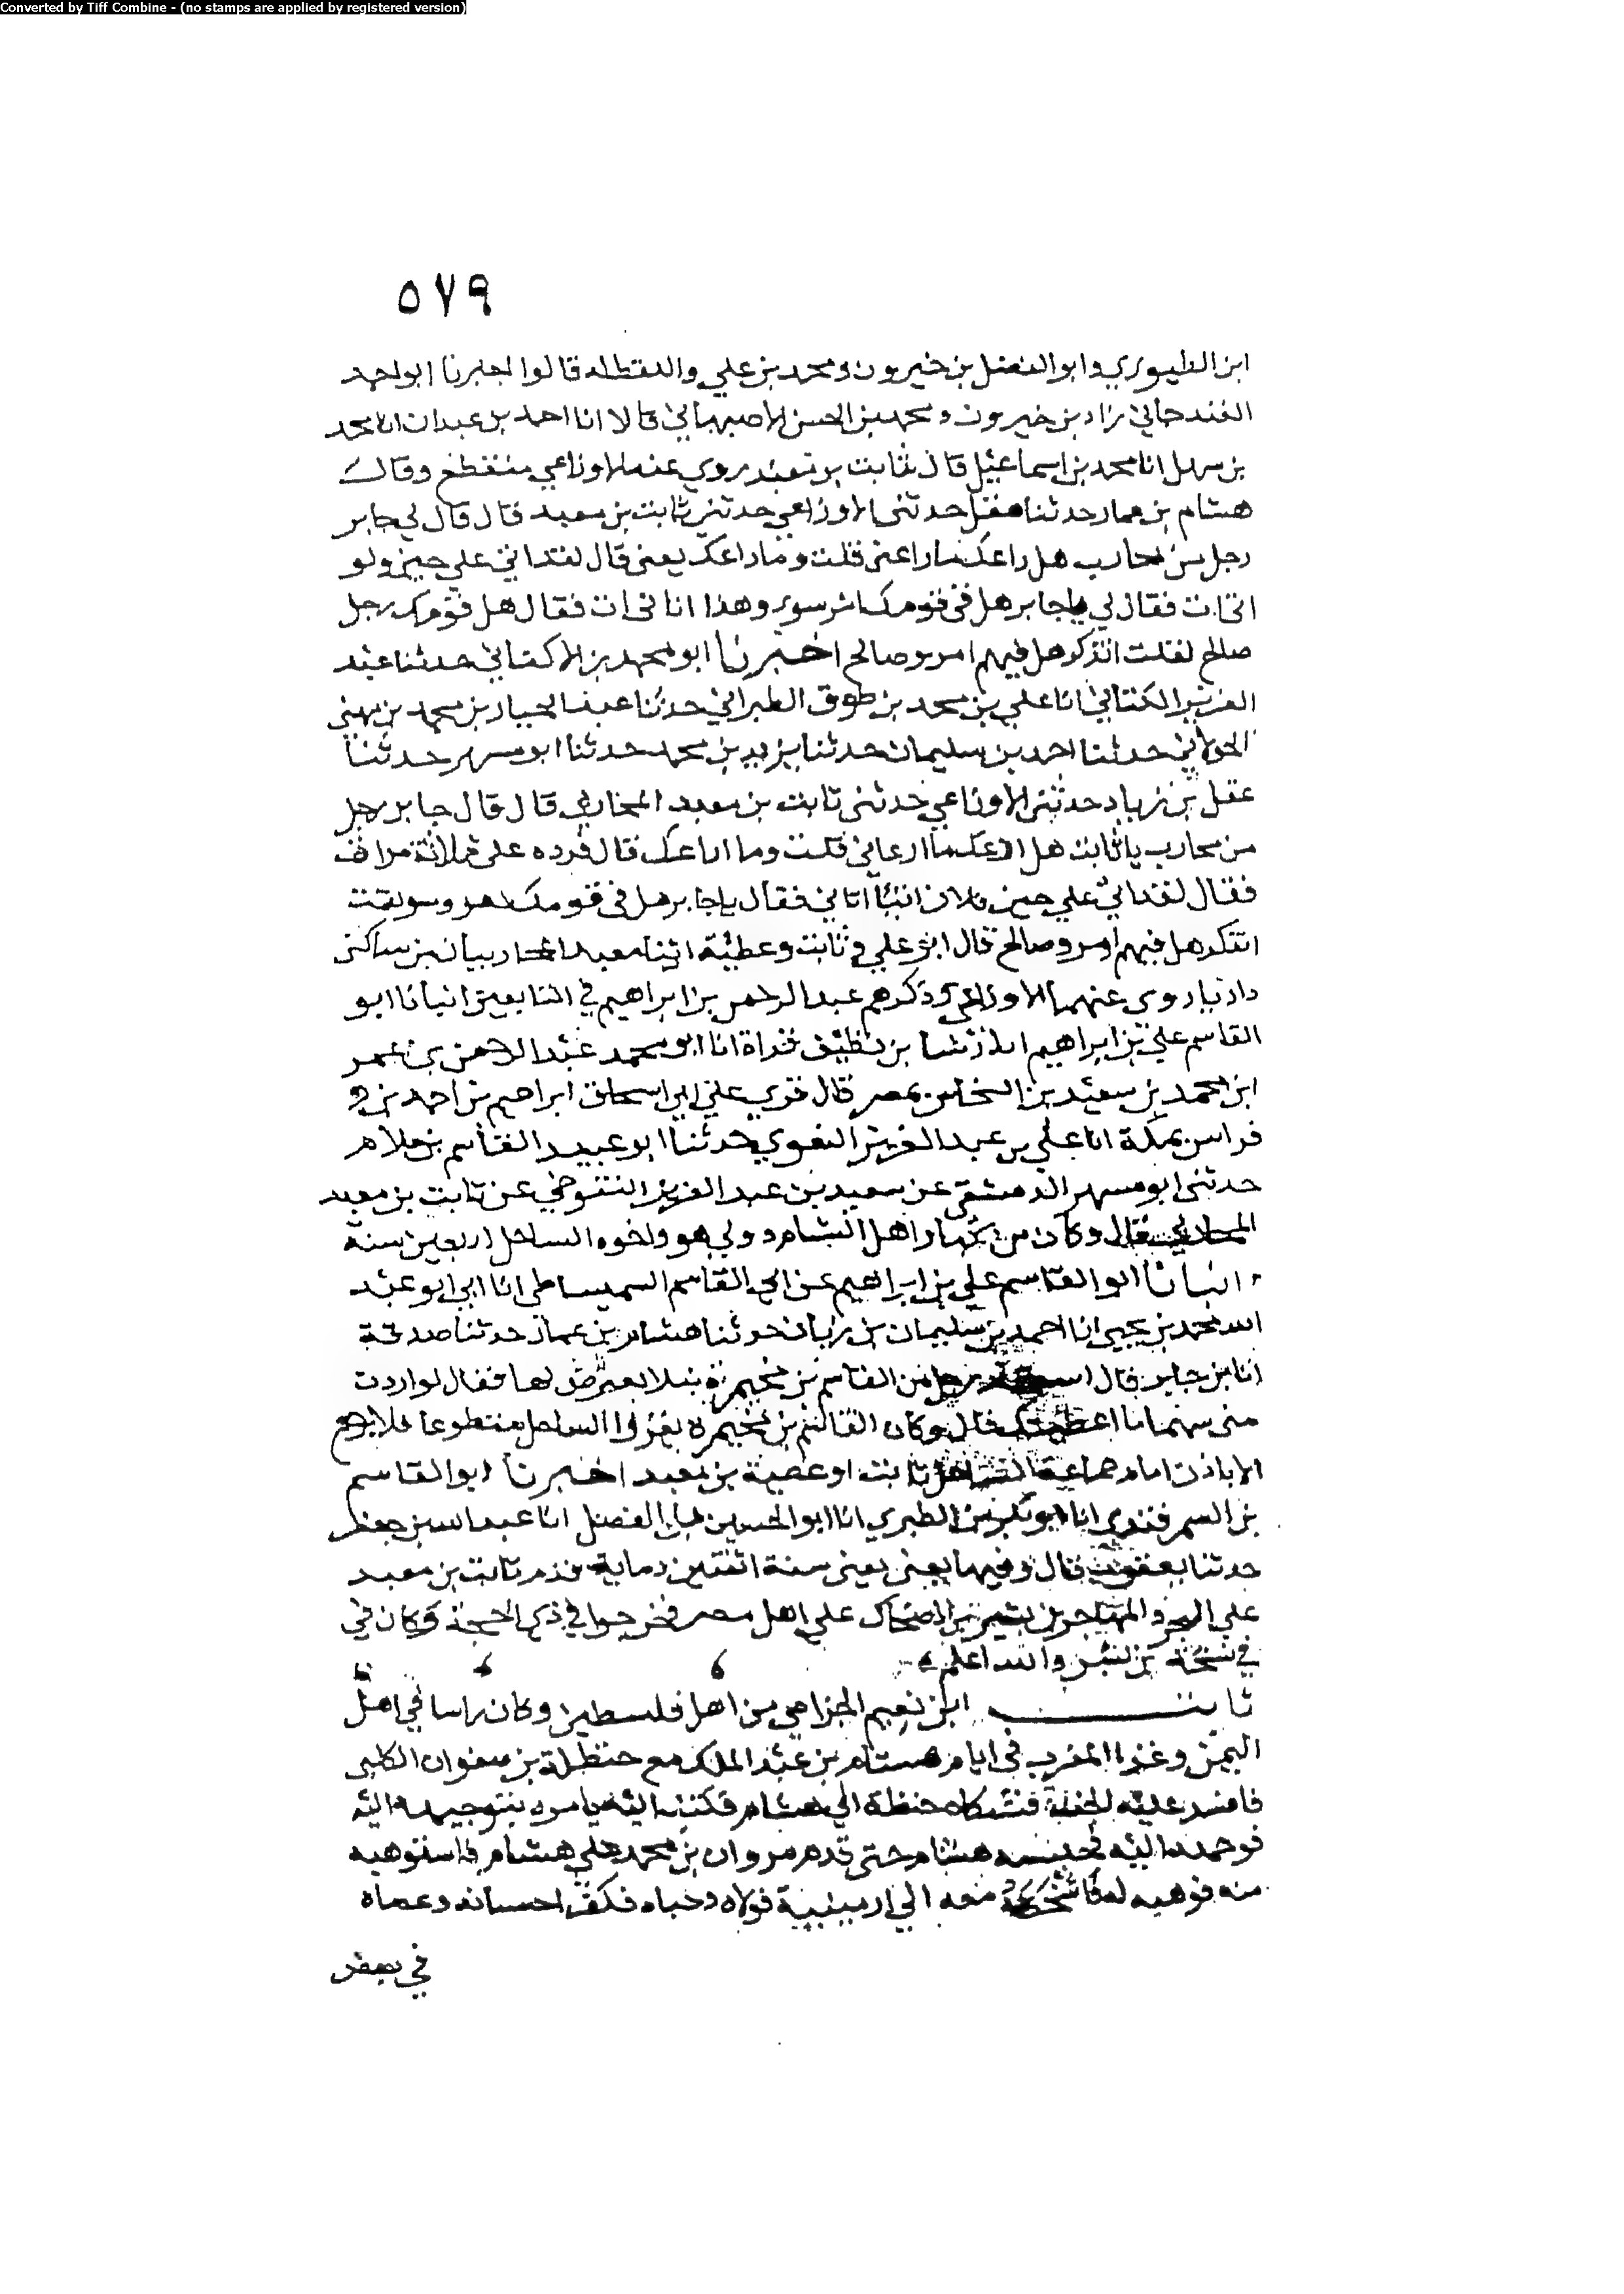 Converted by Tiff Combine - (no stamps are applied by registered version)
٥٧٩
ابن الطيوري وابو الفضل بن خيرون ومحمد بن علي واللفظ له قالوا اخبرنا ابو احمد
الغندجاني زاد بن خيرون ومحمد بن الحسن الاصبهاني قالا انا احمد بن عبدان انا محمد
بن سهل انا محمد بن اسماعيل قال ثابت بن معبد روي عنه الاوزاعي منقطع وقال
هشام بن عمار حدثنا هقل حدثني الاوزاعي حدثني ثابت بن معبد قال قال لي جابر
رجل من محارب هل راعك ما راعني قلت وما راعك يعني قال لقد اتي علي حين ولو
اتي ات فقال لي يا جابر هل في قومك سوء وهذا اتاني ات فقال هل قومك رجل
صالح لقلت اتذكر هل فيهم امرو صالح اخبرنا ابو محمد بن الاكفاني حدثنا عبد
العزيز الكتاني انا علي بن محمد بن طوق الطبراني حدثنا عبد الجبار بن محمد بن مهني
الخولاني حدثنا احمد بن سليمان حدثنا يزيد بن محمد حدثنا ابو مسهر حدثنا
عقل بن زياد حدثني الاوزاعي حدثني ثابت بن معبد المحاربي قال قال جابر رجل
من محارب يا ثابت هل راعك ما راعني قلت وما راعك قال فرده علي ثلاثة مرات
فقال لقد اتي علي حين اتاني فقال يا جابر هل في قومك
اتذكر هل فيهم امرو صالح قال ابو علي وثابت وعطية ابنا معبد المحاربيان بن ساكني
داريا روى عنهما الاوزاعي وذكرهم عبد الرحمن بن ابراهيم في التابعين انبانا ابو
القاسم علي بن ابراهيم انا رشا بن نظيف قراة انا ابو محمد عبد الرحمن بن عمر
ابن محمد بن سعيد بن النحاس بمصر قال قري علي ابي اسحاق ابراهيم بن احمد بن
فراس بمكة انا علي بن عبد العزيز البغوي حدثنا ابو عبيد القاسم بن سلام
حدثني ابو مسهر الدمشقي عن سعيد بن عبد العزيز التنوخي عن ثابت بن معبد
المحاربي قال وكان من خيار اهل الشام وولي هو واخوه الساحل اربعين سنة
انبانا ابو القاسم علي بن ابراهيم عن ابي القاسم السميساطي انا ابي ابو عبد
الله محمد بن يحيى انا احمد بن سليمان بن زبان حدثنا هشام بن عمار حدثنا صدقة
انا بن جابر قال رجل من القاسم بن مخيمرة نبلا فقال لو اردت
مني سهما ما اعطيتك قال وكان القاسم بن مخيمرة يغزوا الساحل متطوعا فلا
الا باذن امام جماعة الساحل ثابت او عطية بن معبد اخبرنا ابو القاسم
بن السمرقندي انا ابو بكر بن الطبري انا ابو الحسين بن الفضل انا عبد الله بن جعفر
حدثنا يعقوب قال وفيها يعني يعني سنة اثنتين وماية قدم ثابت بن معبد
علي البحر والمهاجر بن بشير بن الضحاك علي اهل مصر فخرجوا في ذي الحجة وكان في
في نسخة بن بشر والله اعلم
ثابت ابن نعيم الجزامي من اهل فلسطين وكان راسا في اهل
اليمن وغزا المغرب في ايام هشام بن عبد الملك مع حنظلة بن صفوان الكلبي
فافسد عليه الجند فشكاه حنظلة الي هشام فكتب اليه يامره بتوجيهه اليه
فوجهه اليه فحبسه هشام حتى قدم مروان بن محمد علي هشام فاستوهبه
منه فوهبه له معه الي ارمينية فولاه وحباه فكفر احسانه وعصاه
في بعض